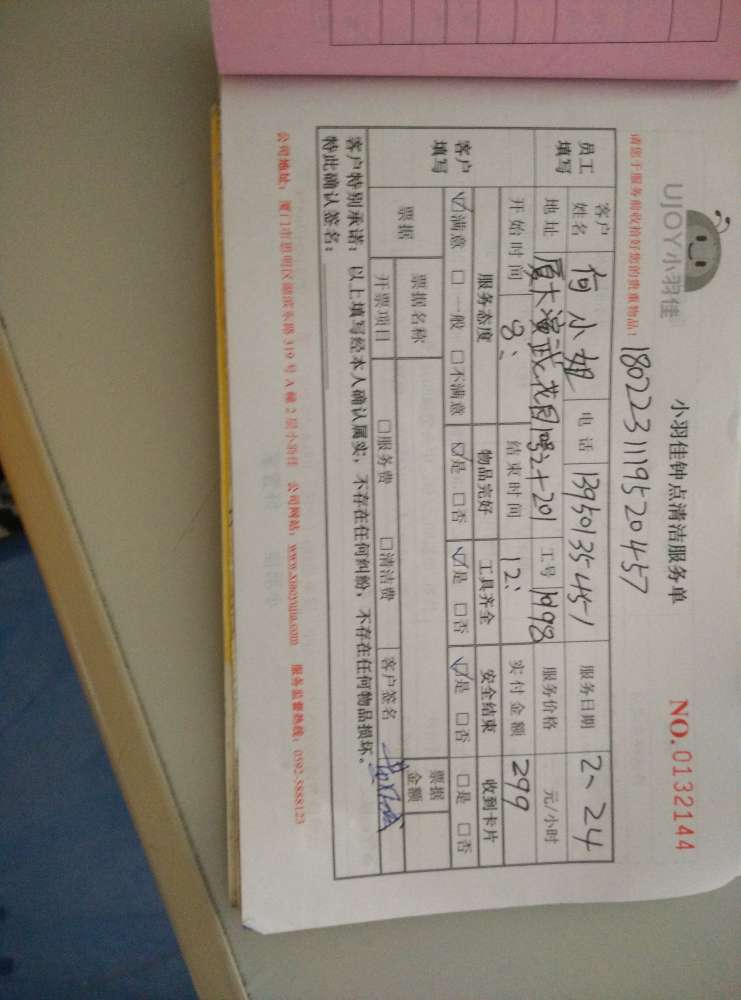 UJOY小羽佳
小羽佳钟点清洁服务单
NO.0132144
请您于服务前收拾好您的贵重物品!
1802231119520457
员工填写
客户姓名 何小姐 电话 13950135451 服务日期 2、24
地址 厦大演武花园 201 工号 1998 服务价格 元/小时
开始时间 8、 结束时间 12、 实付金额 299
客户填写
服务态度 物品完好 工具齐全 安全结束 收到卡片
☑满意 □一般 □不满意 ☑是 □否 ☑是 □否 ☑是 □否 □是 □否
票据 票据名称 票据金额
开票项目 □服务费 □清洁费 客户签名
客户特别承诺：以上填写经本人确认属实，不存在任何纠纷，不存在任何物品损坏。
特此确认签名：
公司地址：厦门市思明区湖滨东路319号A幢2层小羽佳 公司网站：www.xiaoyujia.com 服务监督热线：0592-5888123